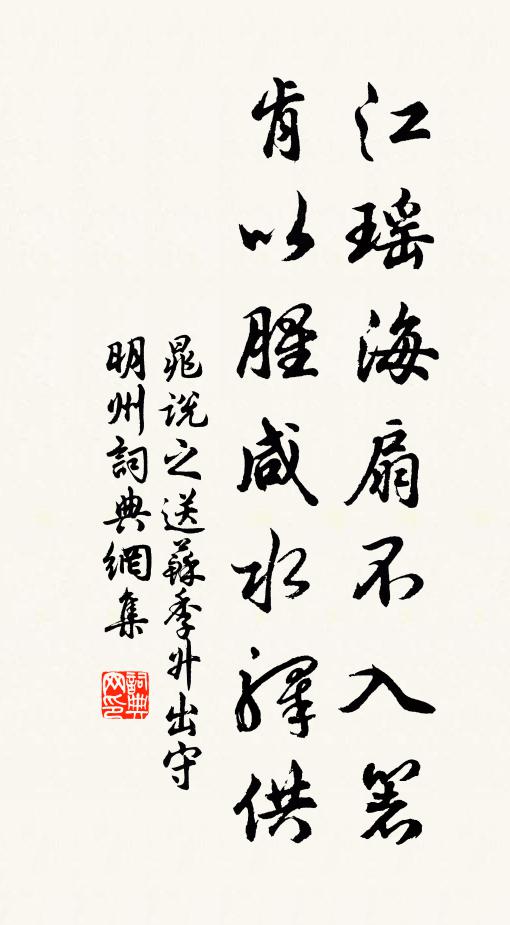 江瑶海扇不入箸
肯以腥咸水驛供
晁說之送蘇季升出守
明州詞典網集
詞典网印